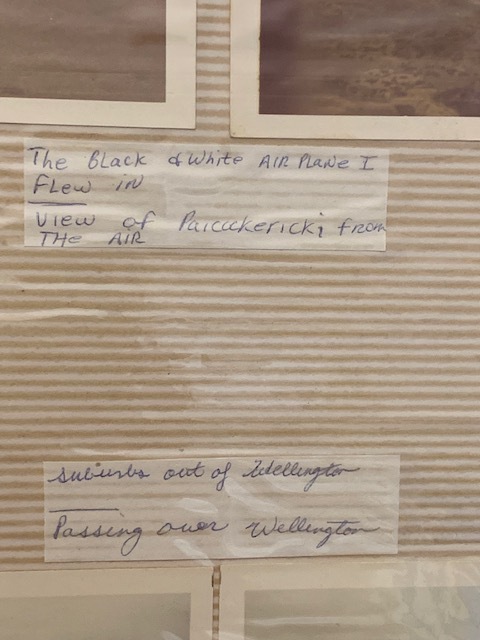 The Black & White AIR Plane I
Flew in
View of Paicukericki from
THe AIR
suburbs out of Wellington
Passing over Wellington